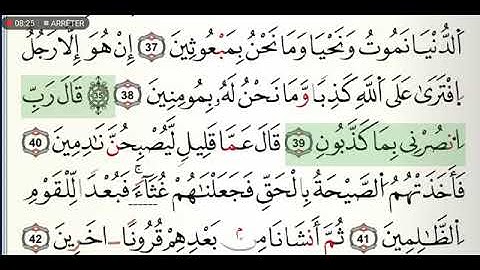 08:25 ■ ARRÊTER
اَ۬لدُّنْيَا نَمُوتُ وَنَحْيَا وَمَا نَحْنُ بِمَبْعُوثِينَ 37 إِنْ هُوَ إِلَّا رَجُلٌ
اِ۪فْتَرَىٰ عَلَى اَ۬للَّهِ كَذِبًا وَمَا نَحْنُ لَهُۥ بِمُومِنِينَ 38 قَالَ رَبِّ
اِ۟نصُرْنِي بِمَا كَذَّبُونِ 39 قَالَ عَمَّا قَلِيلٍ لَّيُصْبِحُنَّ نَٰدِمِينَ 40
فَأَخَذَتْهُمُ اُ۬لصَّيْحَةُ بِالْحَقِّ فَجَعَلْنَٰهُمْ غُثَآءً فَبُعْدًا لِّلْقَوْمِ
اِ۬لظَّٰلِمِينَ 41 ثُمَّ أَنشَأْنَا مِنۢ بَعْدِهِمْ قُرُونًا اٰخَرِينَ 42